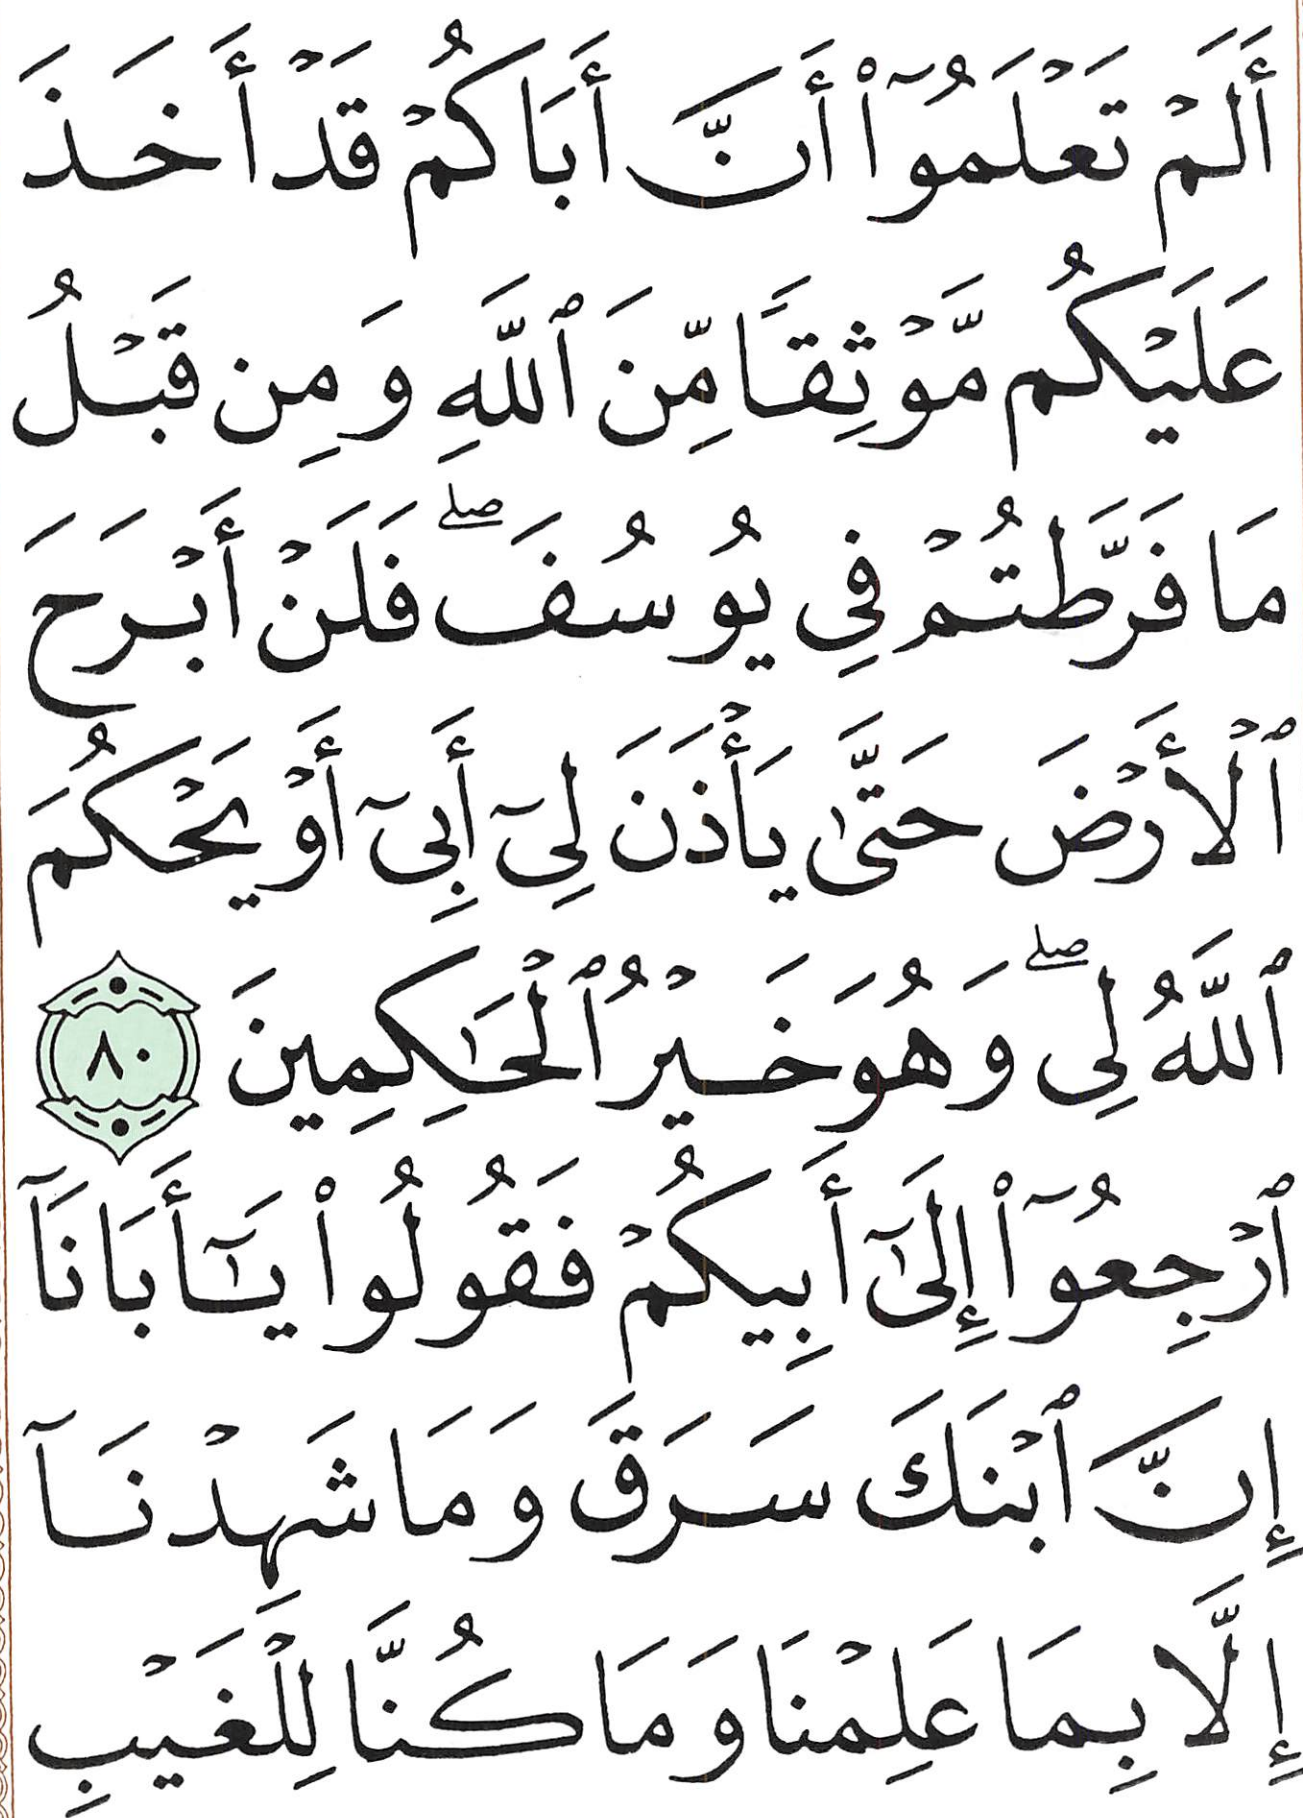 أَلَمْ تَعْلَمُوٓا۟ أَنَّ أَبَاكُمْ قَدْ أَخَذَ
عَلَيْكُم مَّوْثِقًا مِّنَ ٱللَّهِ وَمِن قَبْلُ
مَا فَرَّطتُمْ فِى يُوسُفَ ۖ فَلَنْ أَبْرَحَ
ٱلْأَرْضَ حَتَّىٰ يَأْذَنَ لِىٓ أَبِىٓ أَوْ يَحْكُمَ
ٱللَّهُ لِى ۖ وَهُوَ خَيْرُ ٱلْحَٰكِمِينَ ٨٠
ٱرْجِعُوٓا۟ إِلَىٰٓ أَبِيكُمْ فَقُولُوا۟ يَٰٓأَبَانَآ
إِنَّ ٱبْنَكَ سَرَقَ وَمَا شَهِدْنَآ
إِلَّا بِمَا عَلِمْنَا وَمَا كُنَّا لِلْغَيْبِ